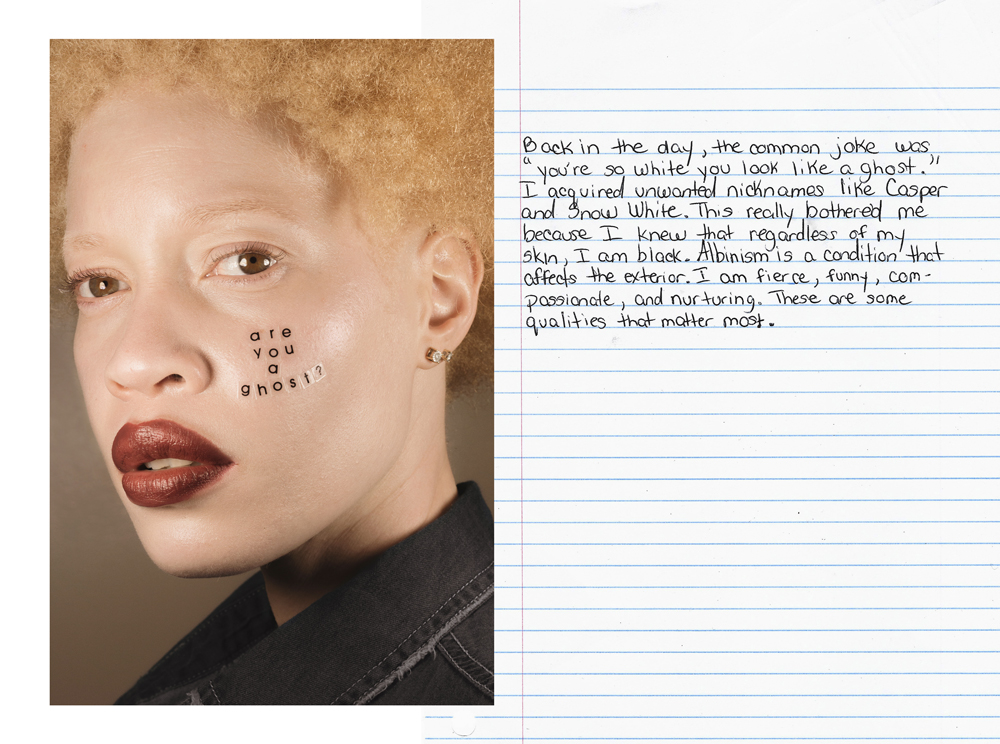 are
you
a
ghost?
Back in the day, the common joke was
"you're so white you look like a ghost."
I acquired unwanted nicknames like Casper
and Snow White. This really bothered me
because I knew that regardless of my
skin, I am black. Albinism is a condition that
affects the exterior. I am fierce, funny, com-
passionate, and nurturing. These are some
qualities that matter most.